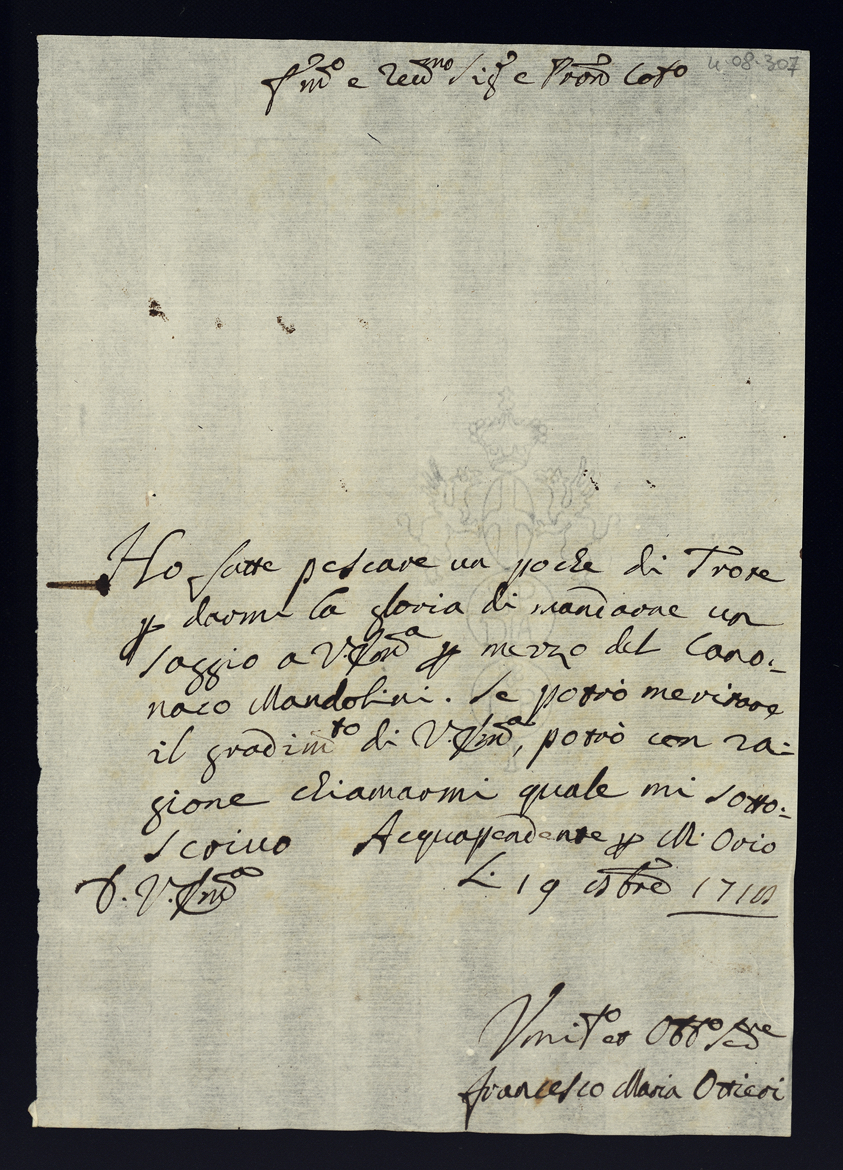 Ill.mo e Reu.mo Sig.r e Pron Col.o
4.08.307
Ho fatte pescare un poche di Trote
p darmi la gloria di mandarne un
saggio a V.S. Ill.ma p mezzo del Cano-
naco Mandolini. Se potrò meritare
il gradim.to di V.S. Ill.ma, potrò con ra-
gione chiamarmi quale mi sotto-
scriuo Acquapendente p M. Orio
D. V.S. Ill.ma
Li 19 8bre
Vmil.o et Obb.o Ser.re
Francesco Maria Ottieri